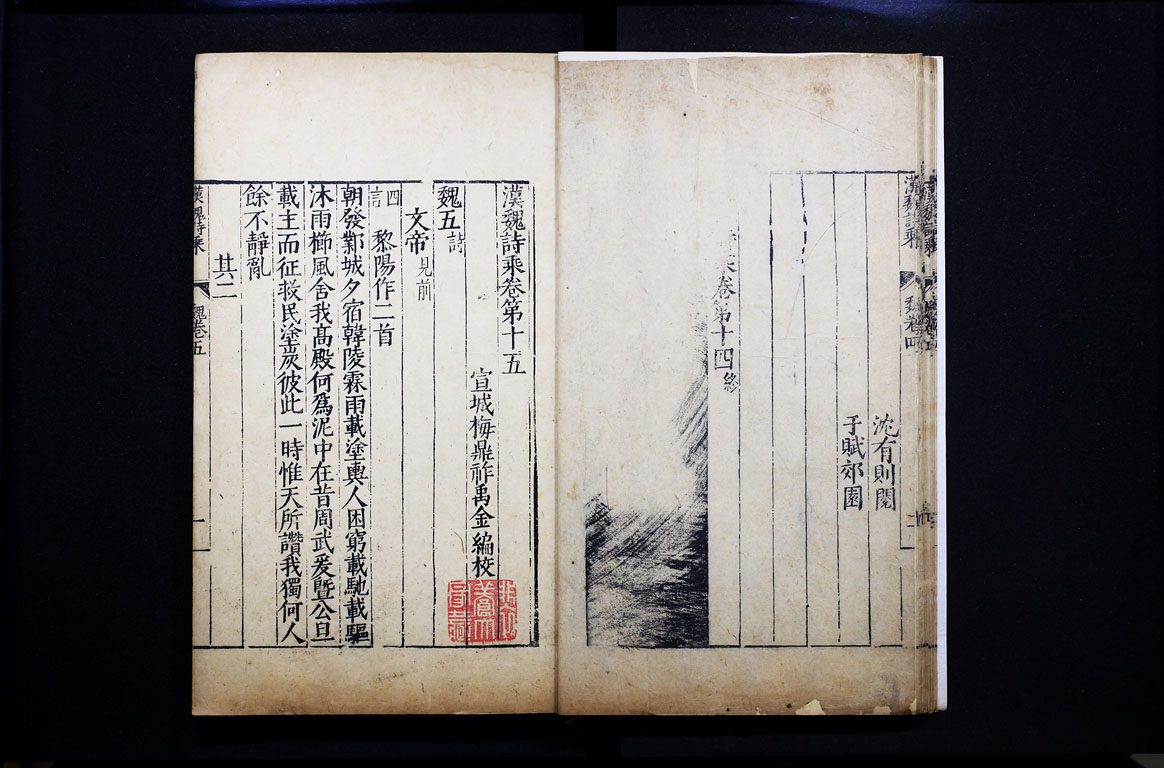 漢魏詩乘 魏卷四 二
沈有則閱
于賦郊園
乘卷第十四終
漢魏詩乘卷第十五
宣城梅鼎祚禹金編校
魏五 詩
文帝 見前
四言 黎陽作二首
朝發鄴城夕宿韓陵霖雨載塗輿人困窮載馳載驅
沐雨櫛風舍我高殿何爲泥中在昔周武爰暨公旦
載主而征救民塗炭彼此一時惟天所讚我獨何人
餘不靜亂
其二
漢魏詩乘 魏卷五 一